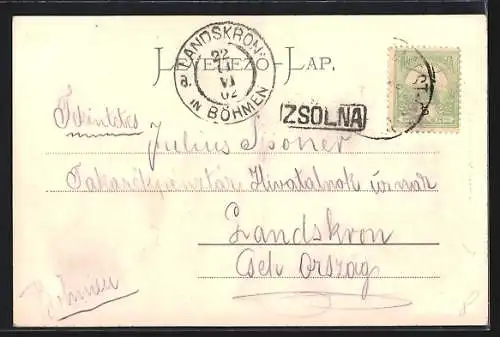 LEVELEZŐ-LAP.
LANDSKRON
IN BÖHMEN
a
22
VI
02
ZSOLNA
Tekintetes
Julius
Takarékpénztár Hivatalnok úrnak
Landskron
Cseh Ország
Böhmen